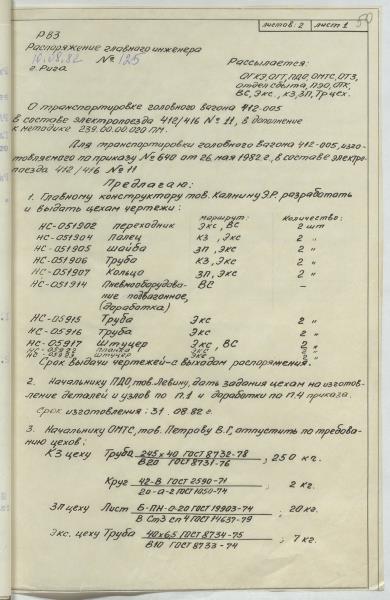 листов: 2 лист 1
50
РВЗ
Распоряжение главного инженера
10.08.82 № 125
г. Рига
Рассылается:
ОГКЭ, ОГТ, ПДО, ОМТС, ОТЗ,
отдел сбыта, ПЭО, ОТК,
ВС, Экс., КЗ, ЗП, Тр.цех.
О транспортировке головного вагона 412-005
в составе электропоезда 412/416 № 11, в дополнение
к методике 239.00.00.020 ПМ.
Для транспортировки головного вагона 412-005, изго-
товляемого по приказу № 640 от 26 мая 1982 г., в составе электро-
поезда 412/416 № 11
Предлагаю:
1. Главному конструктору тов. Калнину Э.Р. разработать
и выдать цехам чертежи:
маршрут: Количество:
НС-051902 переходник Экс, ВС 2 шт
НС-051904 Палец КЗ, Экс 2 "
НС-051905 шайба ЗП, Экс 2 "
НС-051906 Труба КЗ, Экс 2 "
НС-051907 Кольцо ЗП, Экс 2 "
НС-051914 Пневмооборудова- ВС –
ние подвагонное,
(доработка)
НС-05915 Труба Экс 2 "
НС-05916 Труба Экс 2 "
НС-05917 Штуцер Экс, ВС 2 "
Экс 2 "
штуцер Экс 2 "
Срок выдачи чертежей – с выходом распоряжения.
2. Начальнику ПДО, тов. Левину, дать задания цехам на изготов-
ление деталей и узлов по п.1 и доработки по п.4 приказа.
Срок изготовления: 31.08.82 г.
3. Начальнику ОМТС, тов. Петраву В.Г, отпустить по требова-
нию цехов:
КЗ цеху Труба 245х40 ГОСТ 8732-78 ; 250 кг.
В20 ГОСТ 8731-76
Круг 42-В ГОСТ 2590-71 ; 2 кг.
20-а-2 ГОСТ 1050-74
ЗП цеху Лист Б-ПН-О-20 ГОСТ 19903-74 ; 20 кг.
В Ст3 сп 4 ГОСТ 14637-79
Экс. цеху Труба 40х6,5 ГОСТ 8734-75 ; 7 кг.
В10 ГОСТ 8733-74